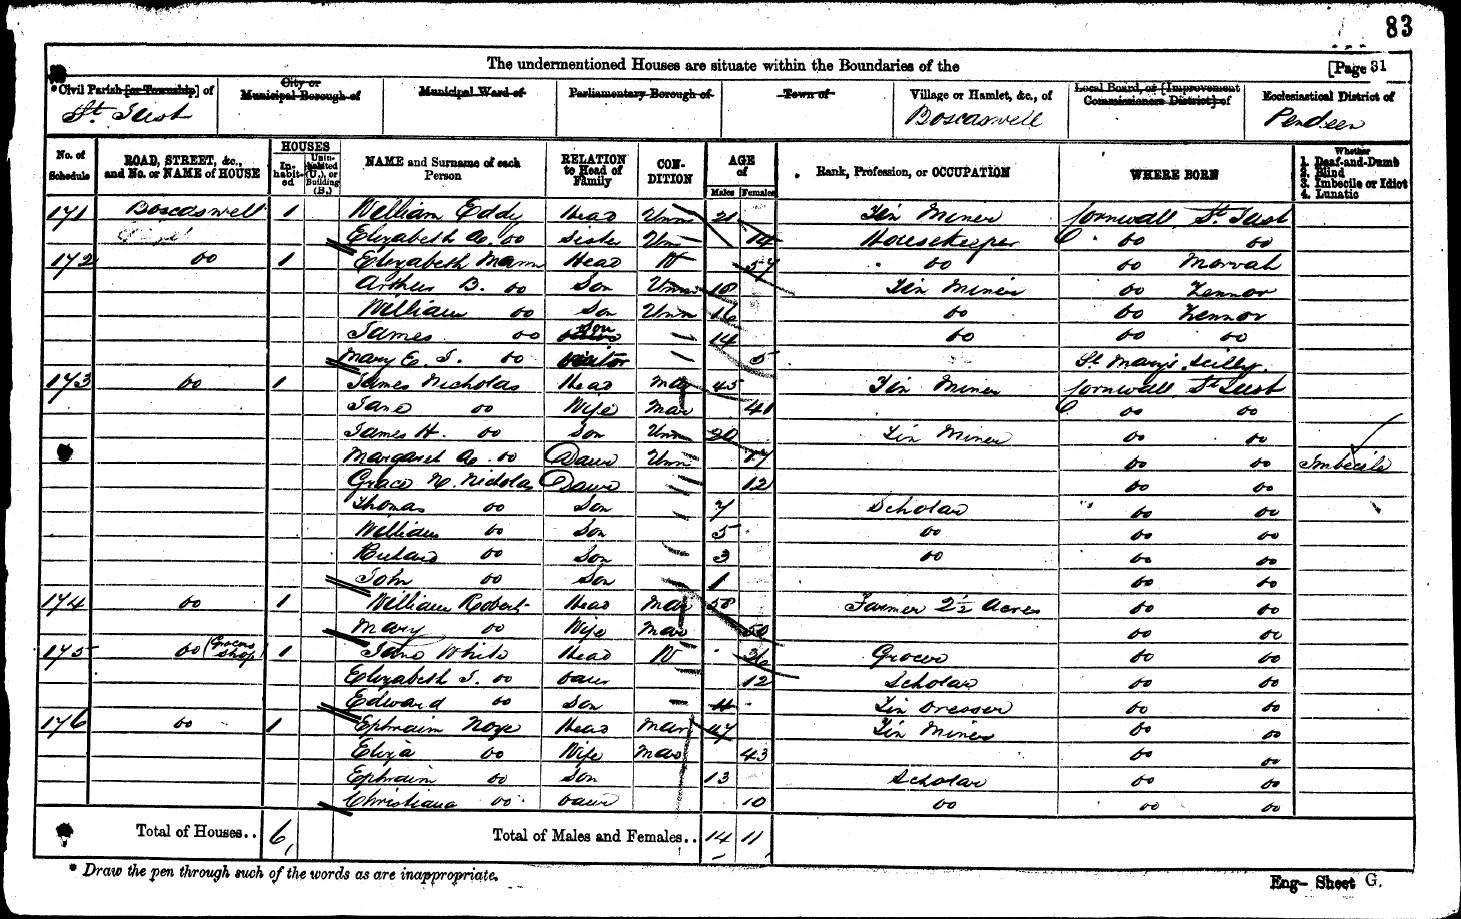 83
The undermentioned Houses are situate within the Boundaries of the [Page 31
* Civil Parish [or Township] of City or Municipal Borough of Municipal Ward of Parliamentary Borough of Town of Village or Hamlet, &c., of Local Board, or [Improvement Commissioners District] of Ecclesiastical District of
St Just Boscaswell Pendeen
No. of Schedule ROAD, STREET, &c., and No. or NAME of HOUSE HOUSES In-habit-ed Unin-habited (U.), or Building (B.) NAME and Surname of each Person RELATION to Head of Family CON-DITION AGE of Males Females Rank, Profession, or OCCUPATION WHERE BORN Whether 1. Deaf-and-Dumb 2. Blind 3. Imbecile or Idiot 4. Lunatic
171 Boscaswell 1 William Eddy Head Unm 21 Tin Miner Cornwall St Just
Elizabeth A. Do Sister Un 14 Housekeeper Do Do
172 Do 1 Elizabeth Mann Head W 57 Do Do Morvah
Arthur B. Do Son Unm 18 Tin Miner Do Zennor
William Do Son Unm 16 Do Do Zennor
James Do Son 14 Do Do Do
Mary E. J. Do Visitor 5 St Mary's Scilly
173 Do 1 James Nicholas Head Mar 45 Tin Miner Cornwall St Just
Jane Do Wife Mar 41 Do Do
James H. Do Son Unm 20 Tin Miner Do Do
Margaret A. Do Daur Unm 17 Do Do Imbecile
Grace N. Nicholas Daur 12 Do Do
Thomas Do Son 7 Scholar Do Do
William Do Son 5 Do Do Do
Richard Do Son 3 Do Do Do
John Do Son 1 Do Do
174 Do 1 William Robert Head Mar 58 Farmer 2½ Acres Do Do
Mary Do Wife Mar 50 Do Do
175 Do (Grocers Shop) 1 Jane White Head W 36 Grocer Do Do
Elizabeth J. Do Daur 12 Scholar Do Do
Edward Do Son 11 Tin Dresser Do Do
176 Do 1 Ephraim Noye Head Mar 47 Tin Miner Do Do
Eliza Do Wife Mar 43 Do Do
Ephraim Do Son 13 Scholar Do Do
Christiana Do Daur 10 Do Do Do
Total of Houses.. 6 Total of Males and Females.. 14 11
* Draw the pen through such of the words as are inappropriate.
Eng— Sheet G.